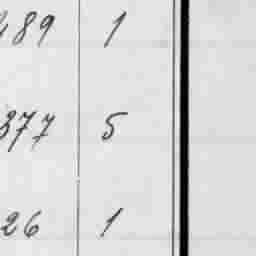 489 1
377 5
26 1